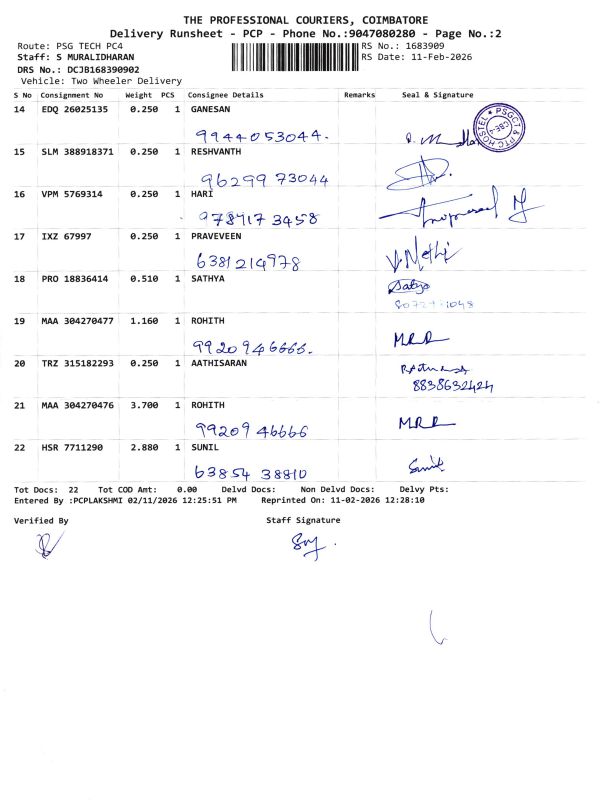 THE PROFESSIONAL COURIERS, COIMBATORE
Delivery Runsheet - PCP - Phone No.:9047080280 - Page No.:2
Route: PSG TECH PC4 RS No.: 1683909
Staff: S MURALIDHARAN RS Date: 11-Feb-2026
DRS No.: DCJB168390902
Vehicle: Two Wheeler Delivery
S No Consignment No Weight PCS Consignee Details Remarks Seal & Signature
14 EDQ 26025135 0.250 1 GANESAN
9944053044.
15 SLM 388918371 0.250 1 RESHVANTH
96299 73044
16 VPM 5769314 0.250 1 HARI
978917 3458
17 IXZ 67997 0.250 1 PRAVEVEEN
6381214978
18 PRO 18836414 0.510 1 SATHYA
Sathya
19 MAA 304270477 1.160 1 ROHITH
9920946666. M.R.R
20 TRZ 315182293 0.250 1 AATHISARAN
8838632424
21 MAA 304270476 3.700 1 ROHITH
99209 46666 M.R.R
22 HSR 7711290 2.880 1 SUNIL
63854 38810 Sunil
Tot Docs: 22 Tot COD Amt: 0.00 Delvd Docs: Non Delvd Docs: Delvy Pts:
Entered By :PCPLAKSHMI 02/11/2026 12:25:51 PM Reprinted On: 11-02-2026 12:28:10
Verified By Staff Signature